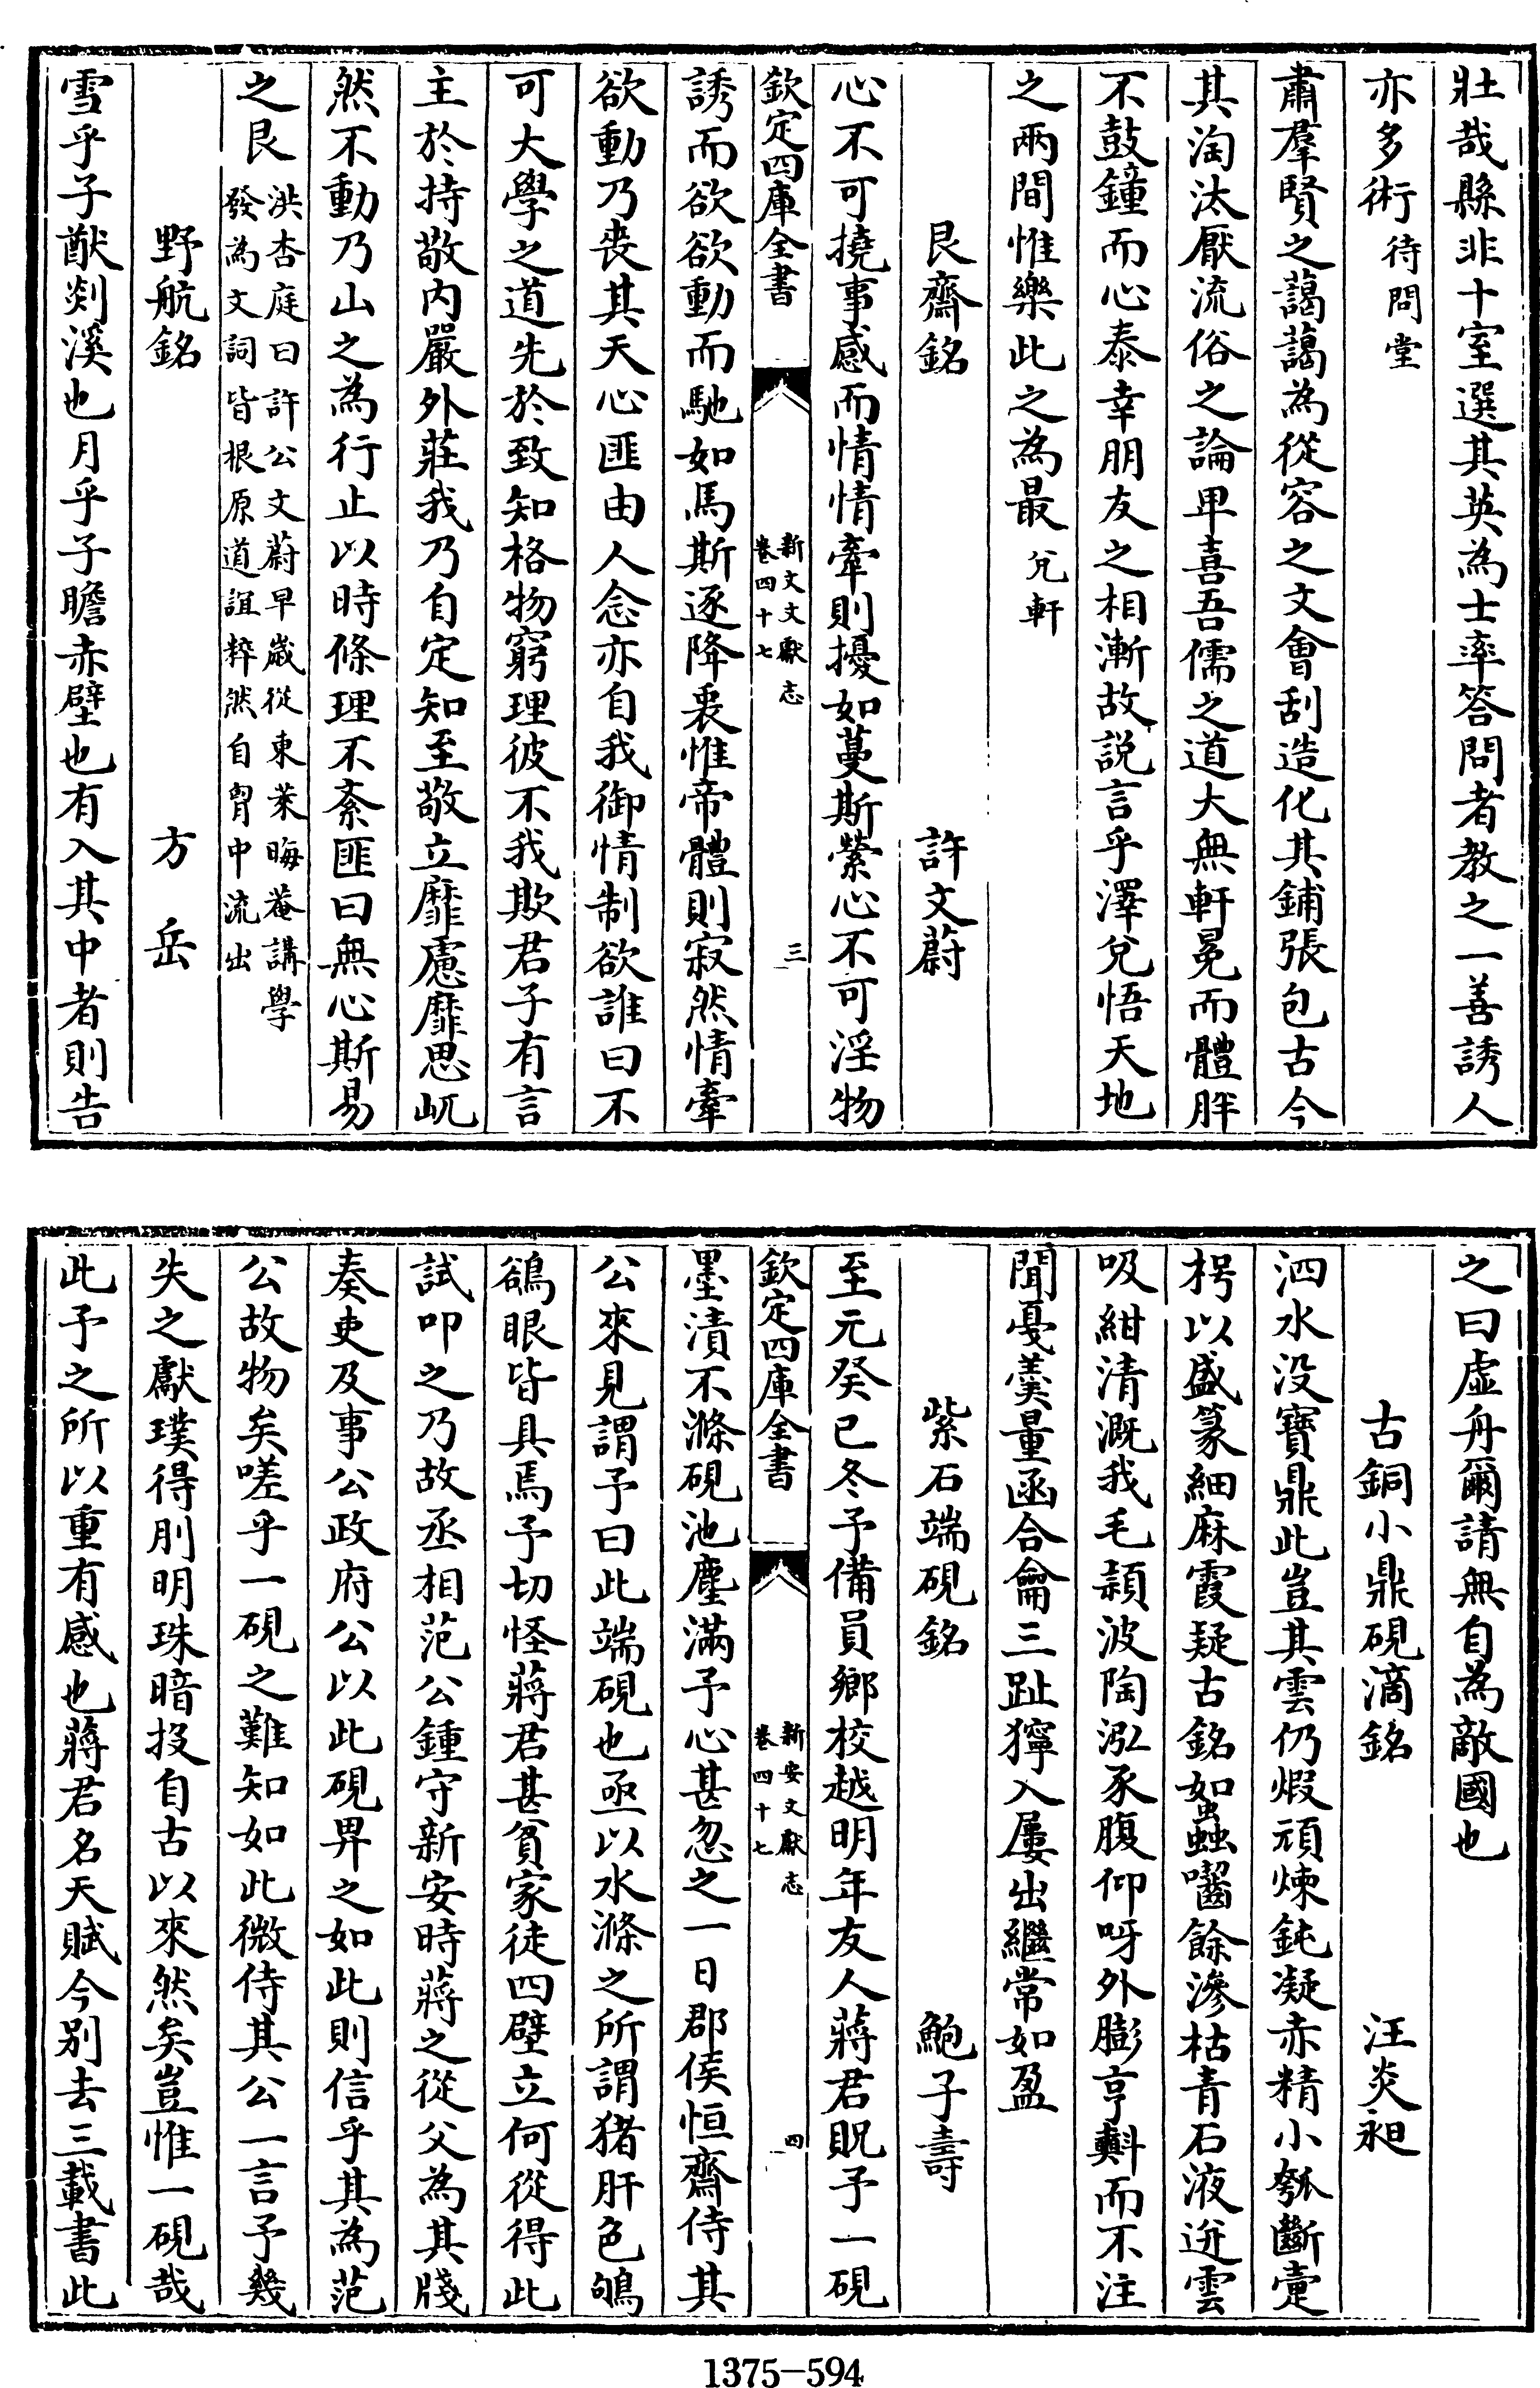 壯哉縣非十室選其英為士率答問者教之一善誘人
亦多術待問堂
肅羣賢之藹藹為從容之文會刮造化其鋪張包古今
其淘汰厭流俗之論卑喜吾儒之道大無軒冕而體胖
不鼓鐘而心泰幸朋友之相漸故説言乎澤兌悟天地
之兩間惟樂此之為最兌軒
艮齋銘 許文蔚
心不可撓事感而情情牽則擾如蔓斯縈心不可淫物
欽定四庫全書 新文文獻志 卷四十七 三
誘而欲欲動而馳如馬斯逐降衷惟帝體則寂然情牽
欲動乃喪其天心匪由人念亦自我御情制欲誰曰不
可大學之道先於致知格物窮理彼不我欺君子有言
主於持敬内嚴外莊我乃自定知至敬立靡慮靡思屹
然不動乃山之為行止以時條理不紊匪曰無心斯易
之艮洪杏庭曰許公文蔚早嵗從東萊晦菴講學
發為文詞皆根原道誼粹然自胷中流出
野航銘 方岳
雪乎子猷剡溪也月乎子瞻赤壁也有入其中者則告
之曰虚舟爾請無自為敵國也
古銅小鼎硯滴銘 汪炎昶
泗水没寶鼎此豈其雲仍煆頑煉鈍凝赤精小瓠斷壷
枵以盛篆細麻霞疑古銘如蟲囓餘滲枯青石液迸雲
吸紺清溉我毛穎波陶泓豕腹仰呀外膨亨㪺而不注
聞戞羮量函合龠三趾獰入屢出繼常如盈
紫石端硯銘 鮑子壽
至元癸巳冬予備員鄉校越明年友人蔣君貺予一硯
欽定四庫全書 新安文獻志 卷四十七 四
墨漬不滌硯池塵滿予心甚忽之一日郡侯恒齋侍其
公來見謂予曰此端硯也亟以水滌之所謂猪肝色鴝
鵒眼皆具焉予切怪蔣君甚貧家徒四壁立何從得此
試叩之乃故丞相范公鍾守新安時蔣之從父為其牋
奏吏及事公政府公以此硯畀之如此則信乎其為范
公故物矣嗟乎一硯之難知如此微侍其公一言予幾
失之獻璞得刖明珠暗投自古以來然矣豈惟一硯哉
此予之所以重有感也蔣君名天賦今别去三載書此
1375-594